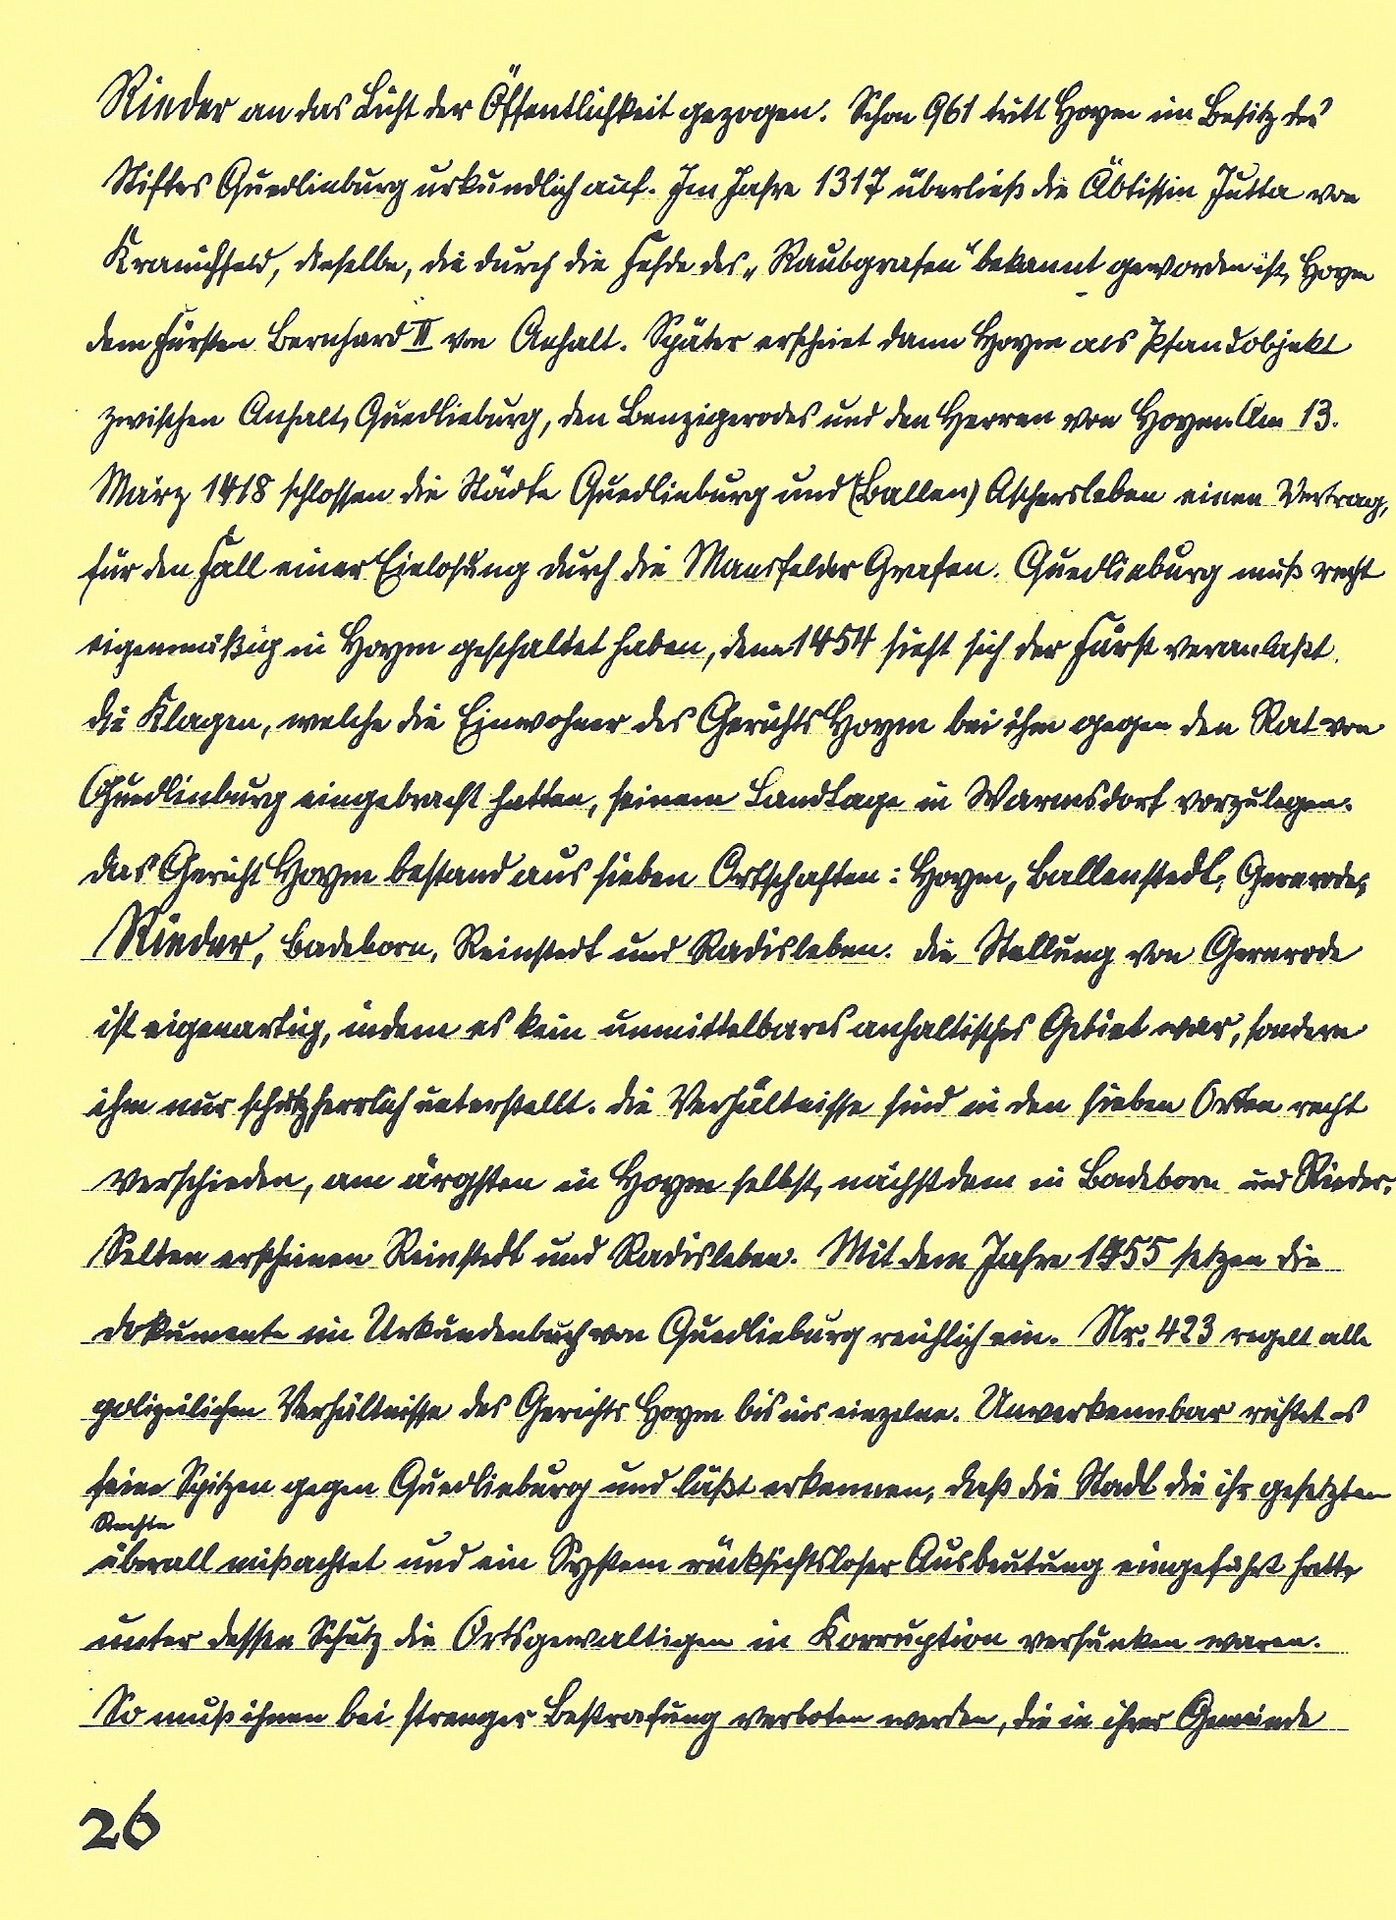 Rieder an das Licht der Öffentlichkeit gezogen. Schon 961 tritt Hoym im Besitz des
Stiftes Quedlinburg urkundlich auf. Im Jahre 1317 überließ die Äbtissin Jutta von
Kranichfeld, dieselbe, die durch die Fehde des „Raubgrafen" bekannt geworden ist, Hoym
dem Fürsten Bernhard II von Anhalt. Später erscheint dann Hoym als Pfandobjekt
zwischen Anhalt, Quedlinburg, den Benzigerodes und den Herren von Hoym. Am 13.
März 1418 schlossen die Städte Quedlinburg und (Ballen) Aschersleben einen Vertrag,
für den Fall einer Einlösung durch die Mansfelder Grafen. Quedlinburg muß recht
eigenmäßig in Hoym geschaltet haben, denn 1454 sieht sich der Fürst veranlaßt.
die Klagen, welche die Einwohner des Gerichts Hoym bei ihm gegen den Rat von
Quedlinburg eingebracht hatten, seinem Landtage in Warmsdorf vorzulegen.
Das Gericht Hoym bestand aus sieben Ortschaften: Hoym, Ballenstedt, Gernrode,
Rieder, Badeborn, Reinstedt und Radisleben. Die Stellung von Gernrode
ist eigenartig, indem es kein unmittelbares anhaltisches Gebiet war, sondern
ihm nur schutzherrlich unterstellt. Die Verhältnisse sind in den sieben Orten recht
verschieden, am ärgsten in Hoym selbst, nächstdem in Badeborn und Rieder.
Selten erscheinen Reinstedt und Radisleben. Mit dem Jahre 1455 setzen die
Dokumente im Urkundenbuch von Quedlinburg reichlich ein. Nr. 423 regelt alle
polizeilichen Verhältnisse des Gerichts Hoym bis ins einzelne. Unverkennbar richtet es
seine Spitzen gegen Quedlinburg und läßt erkennen, daß die Stadt die ihr gesetzten
Rechte
überall mißachtet und ein System rücksichtsloser Ausbeutung eingeführt hatte
unter dessen Schutz die Ortsgewaltigen in Korruption versunken waren.
So muß ihnen bei strenger Bestrafung verboten werden, die in ihrer Gemeinde
26